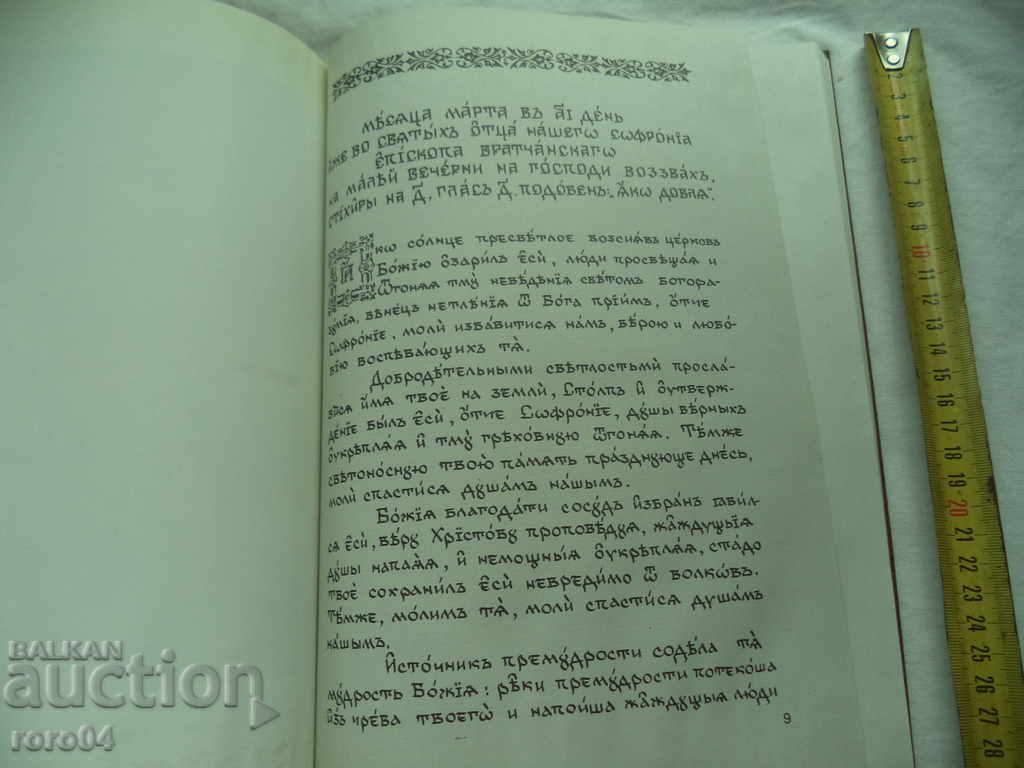 МѢ́СѦЦА МА́РТА ВЪ А҃І ДЕ́НЬ
И́ЖЕ ВО СВѦТЫ́ХЪ Ѻ҆ТЦА̀ НА́ШЕГѠ СѠФРО́НІА
Е҆ПІ́СКОПА ВРАТЧА́НСКАГѠ
НА МА́ЛѢЙ ВЕЧЕ́РНИ НА ГО́СПОДИ ВОЗЗВА́ХЪ,
СТІХИ́РЫ НА Д҃, ГЛА́СЪ Д҃. ПОДО́БЕНЪ: „Ꙗ҆́КѠ ДО́БЛѦ“.
Ꙗ҆́кѡ со́лнце пресвѣ́тлое возсіѧ́въ це́рковь
Бо́жію ѡ҆зари́лъ є҆сѝ, лю́ди просвѣща́ѧ и
ѿгонѧ́ѧ тмꙋ̀ невѣ́дѣнїѧ свѣ́томъ богора-
зꙋ́мїѧ, вѣне́цъ нетлѣ́нїѧ ѿ Бо́га прїи́мъ, ѻ҆́тче
Сѡфро́нїе, молѝ изба́витисѧ на́мъ, вѣ́рою и любо́-
вїю воспѣва́ющихъ тѧ̀.
Добродѣ́тельными свѣ́тлостьмѝ просла́-
висѧ и҆́мѧ твоѐ на землѝ, сто́лпъ и҆ ѹ҆твержде́-
де́нїе бы́лъ є҆сѝ, ѻ҆́тче Сѡфро́нїе, дꙋ́шы вѣ́рныхъ
ѹ҆крѣплѧ́ѧ и҆ тмꙋ̀ грѣхо́внꙋю ѿгонѧ́ѧ. Тѣ́мже
свѣтоно́снꙋю твою̀ па́мѧть пра́зднꙋюще дне́сь,
молѝ спасти́сѧ дꙋша́мъ на́шымъ.
Бо́жїѧ благода́ти сосꙋ́дъ и҆збра́нъ ꙗ҆ви́л-
сѧ є҆сѝ, вѣ́рꙋ Хрїсто́вꙋ проповѣ́дꙋѧ, жа́ждꙋщыѧ
дꙋ́шы напаѧ́ѧ, и҆ немощны́ѧ ѹ҆крѣплѧ́ѧ, ста́до
твоѐ сохрани́лъ є҆сѝ невреди́мо ѿ волкѡ́въ.
Тѣ́мже, мо́лимъ тѧ̀, молѝ спасти́сѧ дꙋша́мъ
на́шымъ.
И҆сто́чникъ премꙋ́дрости содѣ́ла тѧ̀
мꙋ́дрость Бо́жїѧ: рѣ́ки премꙋ́дрости потеко́ша
и҆зъ чре́ва твоегѡ̀ и напои́ша жа́ждꙋщыѧ лю́ди
9
BALKAN
auction
roro04
2
3
4
5
6
7
8
9
10
11
12
13
14
15
16
17
18
19
20
21
22
23
24
25
26
27
28